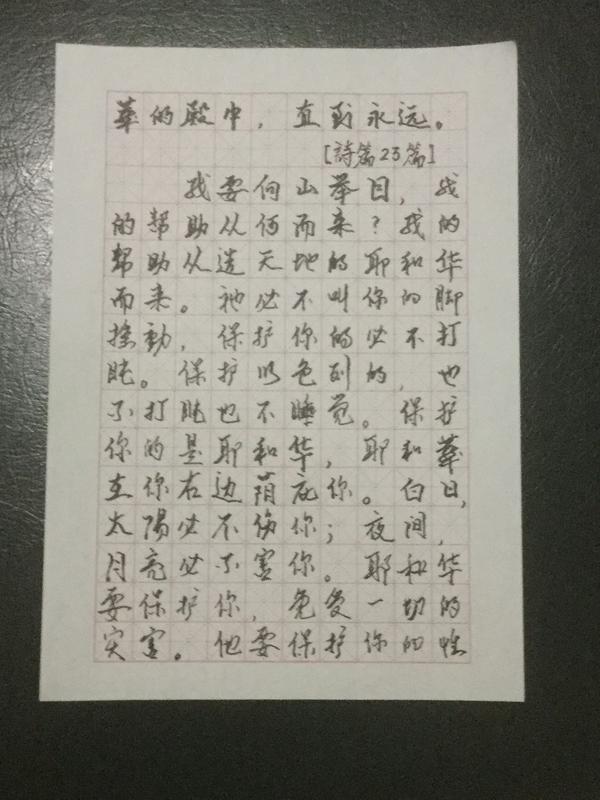 華的殿中，直到永远。
[詩篇23篇]
我要向山举目，我
的帮助从何而来？我的
帮助从造天地的耶和华
而来。祂必不叫你的脚
摇動，保护你的必不打
盹。保护以色列的，也
不打盹也不睡觉。保护
你的是耶和华，耶和華
在你右边荫庇你。白日，
太陽必不伤你；夜间，
月亮必不害你。耶和华
要保护你，免受一切的
灾害。他要保护你的性